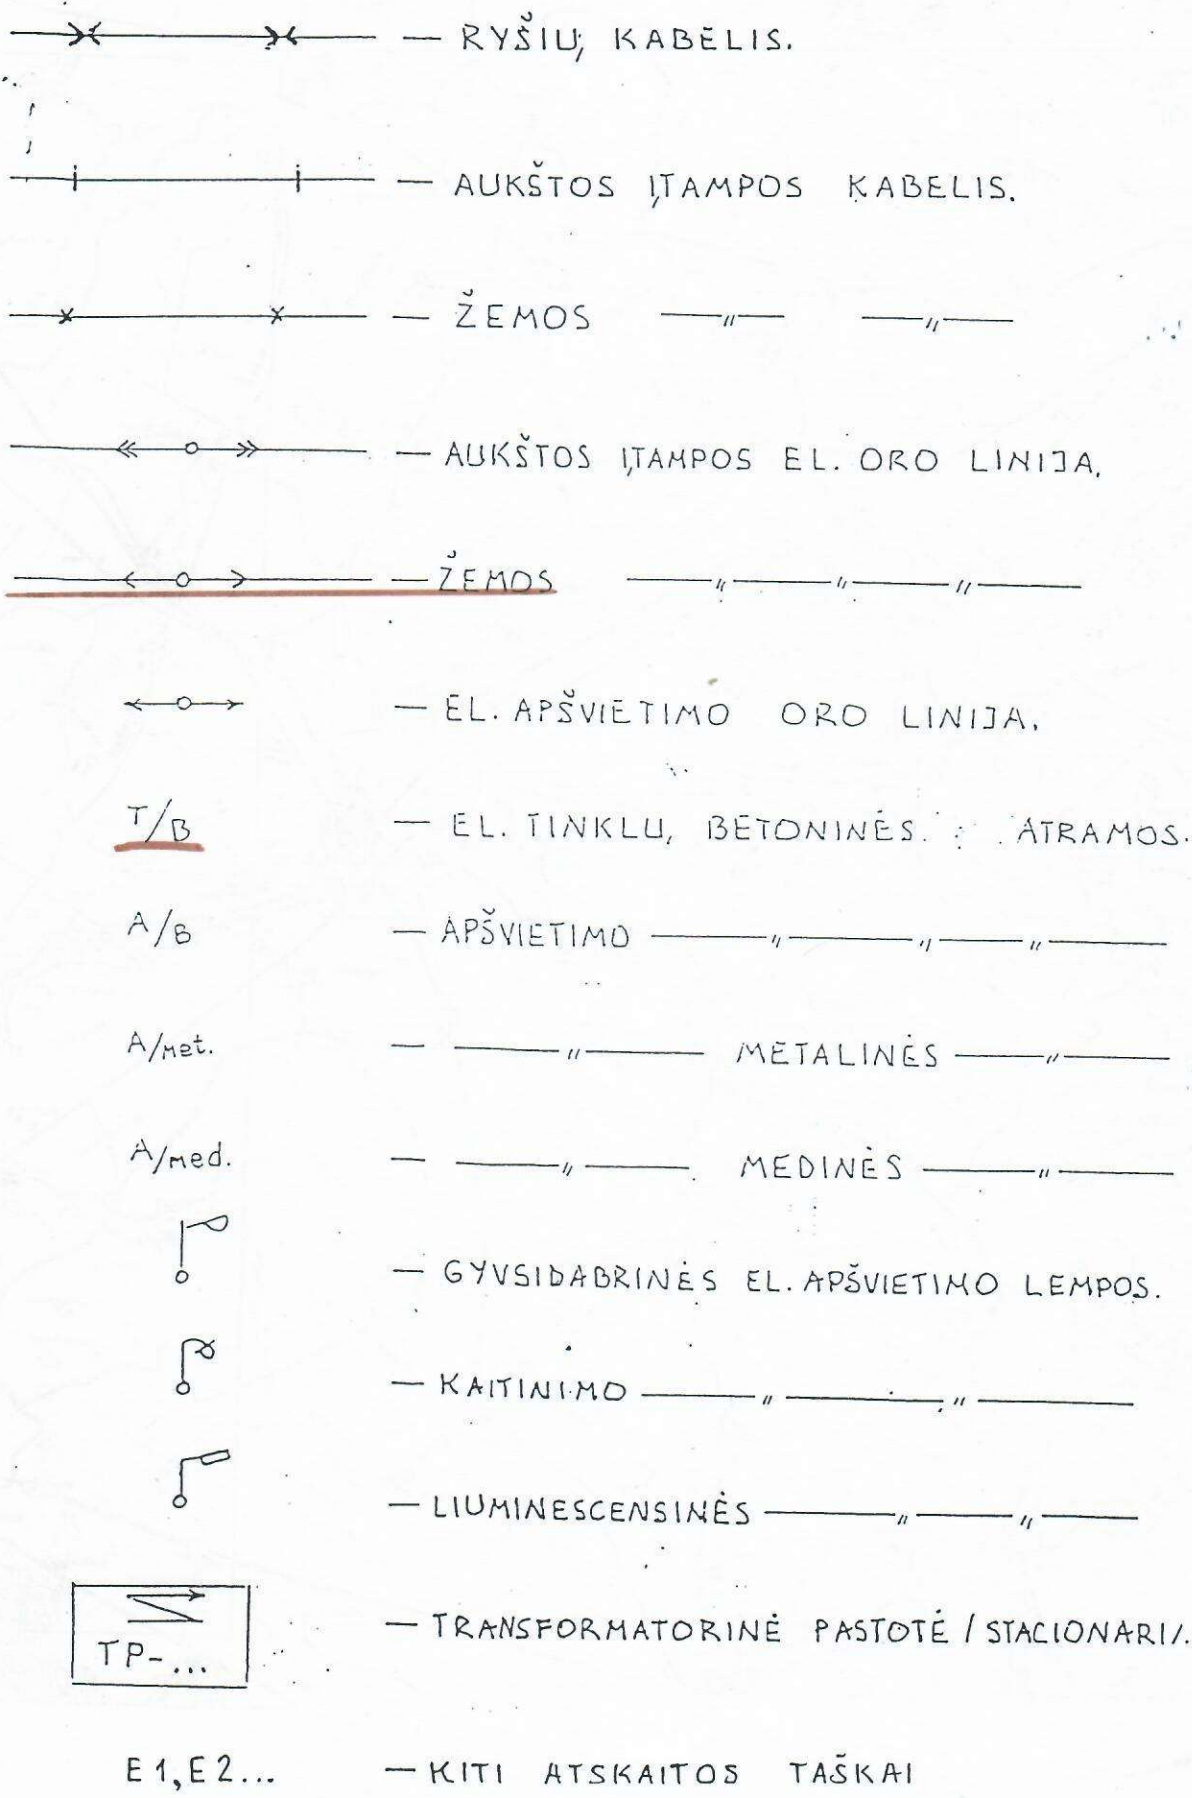 — RYŠIŲ KABELIS.
— AUKŠTOS ĮTAMPOS KABELIS.
— ŽEMOS —"— —"—
— AUKŠTOS ĮTAMPOS EL. ORO LINIJA.
— ŽEMOS —"—"—"—
— EL. APŠVIETIMO ORO LINIJA.
T/B — EL. TINKLŲ BETONINĖS ATRAMOS.
A/B — APŠVIETIMO —"—"—"—
A/met. — —"— METALINĖS —"—
A/med. — —"— MEDINĖS —"—
— GYVSIDABRINĖS EL. APŠVIETIMO LEMPOS.
— KAITINIMO —"—"—
— LIUMINESCENSINĖS —"—"—
TP-... — TRANSFORMATORINĖ PASTOTĖ / STACIONARI/.
E1, E2... — KITI ATSKAITOS TAŠKAI